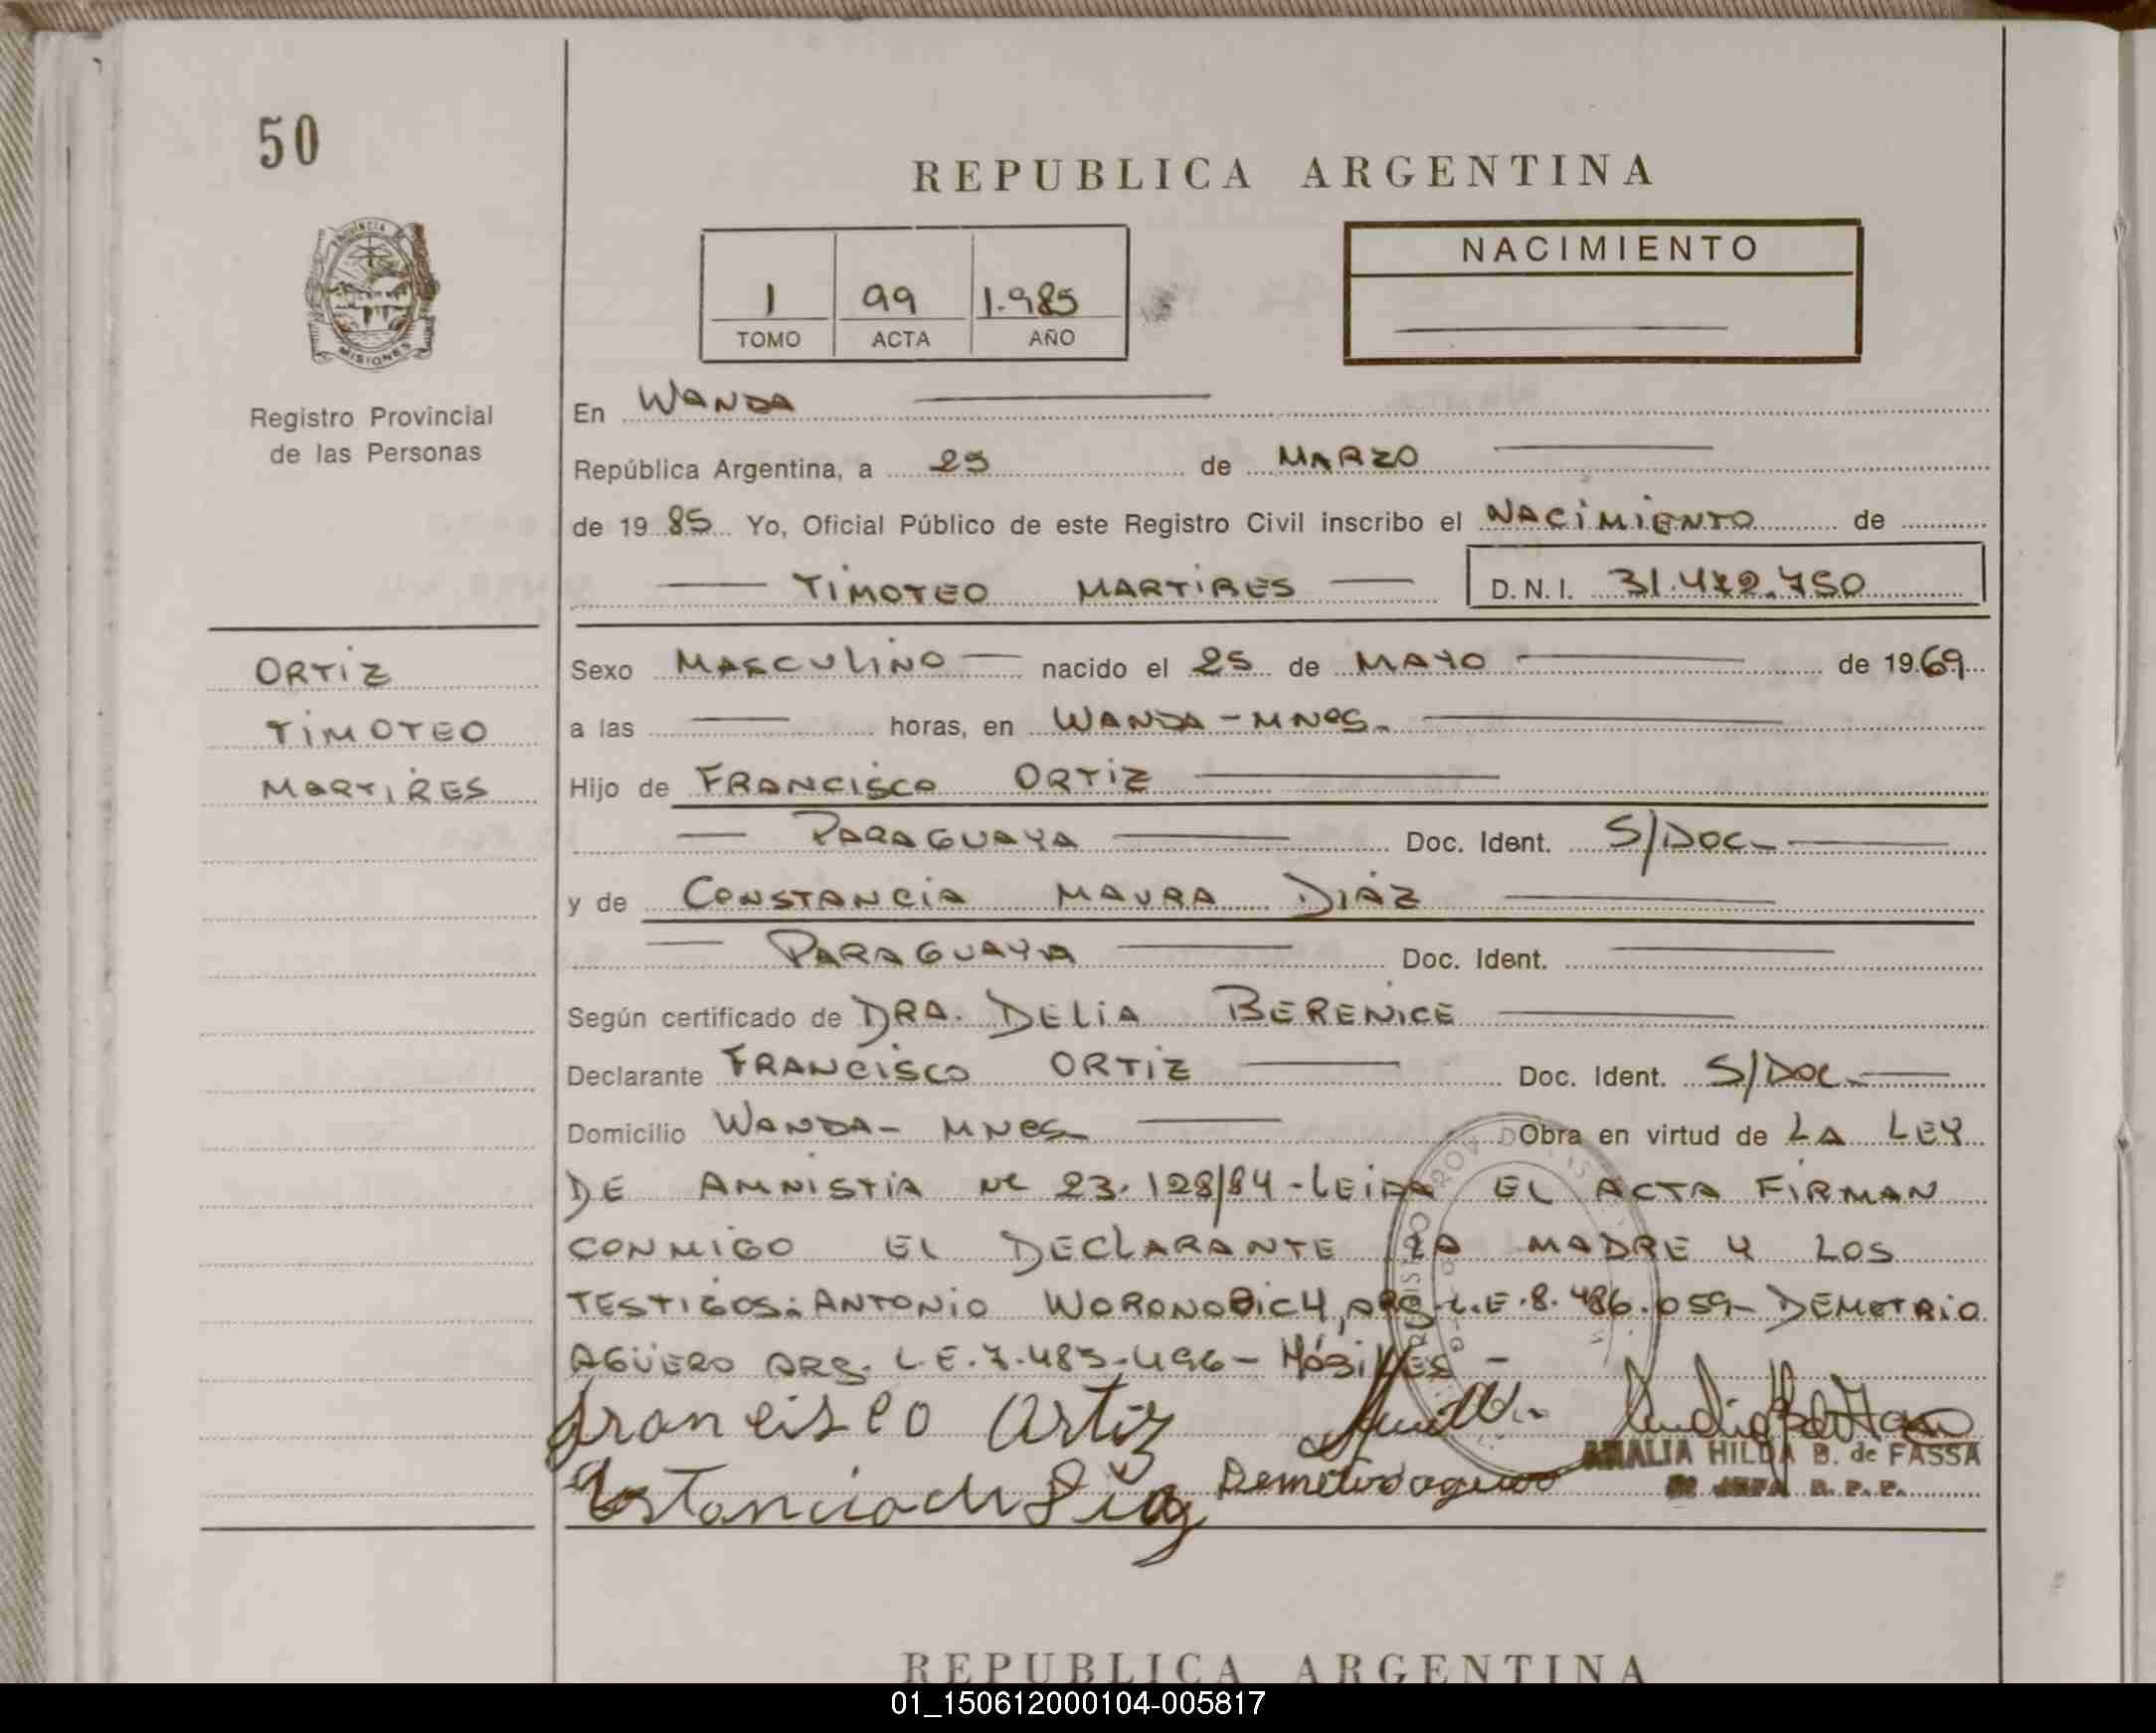 50
REPUBLICA ARGENTINA
NACIMIENTO
1 99 1.985
TOMO ACTA AÑO
PROVINCIA
MISIONES
Registro Provincial
de las Personas
En WANDA
República Argentina, a 25 de MARZO
de 1985 Yo, Oficial Público de este Registro Civil inscribo el NACIMIENTO de
TIMOTEO MARTIRES D.N.I. 31.472.750
ORTIZ
TIMOTEO
MARTIRES
Sexo MASCULINO nacido el 25 de MAYO de 1969
a las horas, en WANDA - MNES.
Hijo de FRANCISCO ORTIZ
PARAGUAYA Doc. Ident. S/DOC.
y de CONSTANCIA MAURA DIAZ
PARAGUAYA Doc. Ident.
Según certificado de DRA. DELIA BERENICE
Declarante FRANCISCO ORTIZ Doc. Ident. S/DOC.
Domicilio WANDA - MNES Obra en virtud de LA LEY
DE AMNISTIA Nº 23.128/84 - LEIDA EL ACTA FIRMAN
CONMIGO EL DECLARANTE LA MADRE Y LOS
TESTIGOS: ANTONIO WORONOBICH, ARG. L.E. 8.486.059 - DEMETRIO
AGÜERO ARG. L.E. 7.483.496 - HÁBILES -
francisco Ortiz
Demetrio aguero
AMALIA HILDA B. de FASSA
R. P. P.
REPUBLICA ARGENTINA
01_150612000104-005817